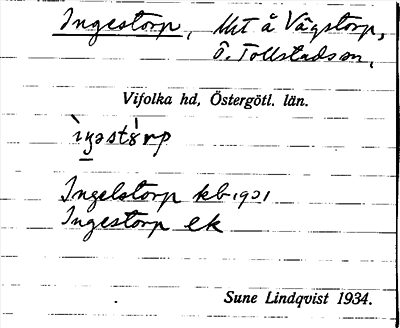 Ingestorp, Utt å Vågstorp,
Ö. Tollstads sn,
Vifolka hd, Östergötl. län.
Ingelstorp kb 1921
Ingestorp ek
Sune Lindqvist 1934.